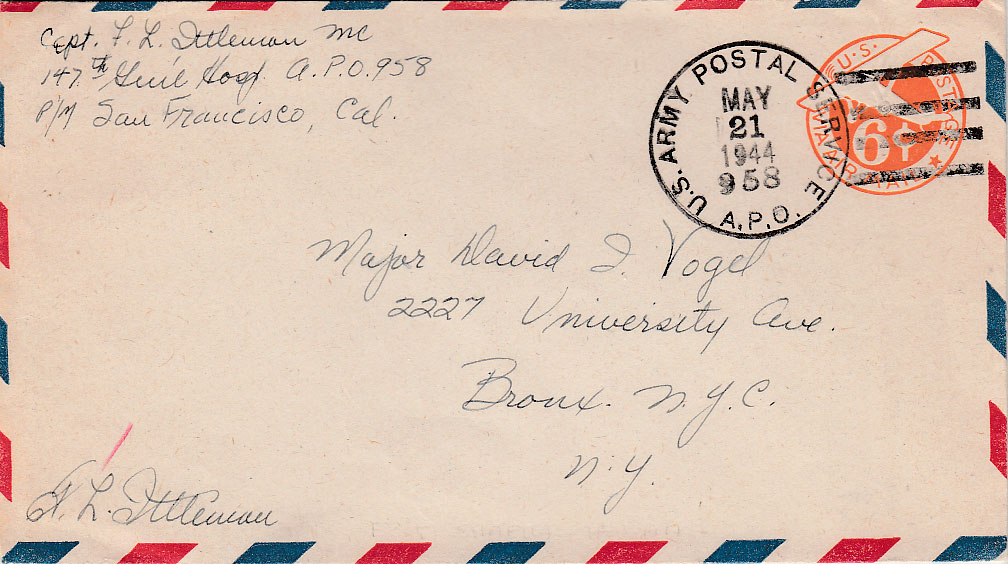 Capt. F. L. Ittleman MC
147th Gen'l Hosp. A.P.O. 958
P/M San Francisco, Cal.
U.S. ARMY POSTAL SERVICE
MAY
21
1944
958
A.P.O.
U.S. POSTAGE
6¢
VIA AIR MAIL
Major David I. Vogel
2227 University Ave.
Bronx. N.Y.C.
N.Y.
F. L. Ittleman